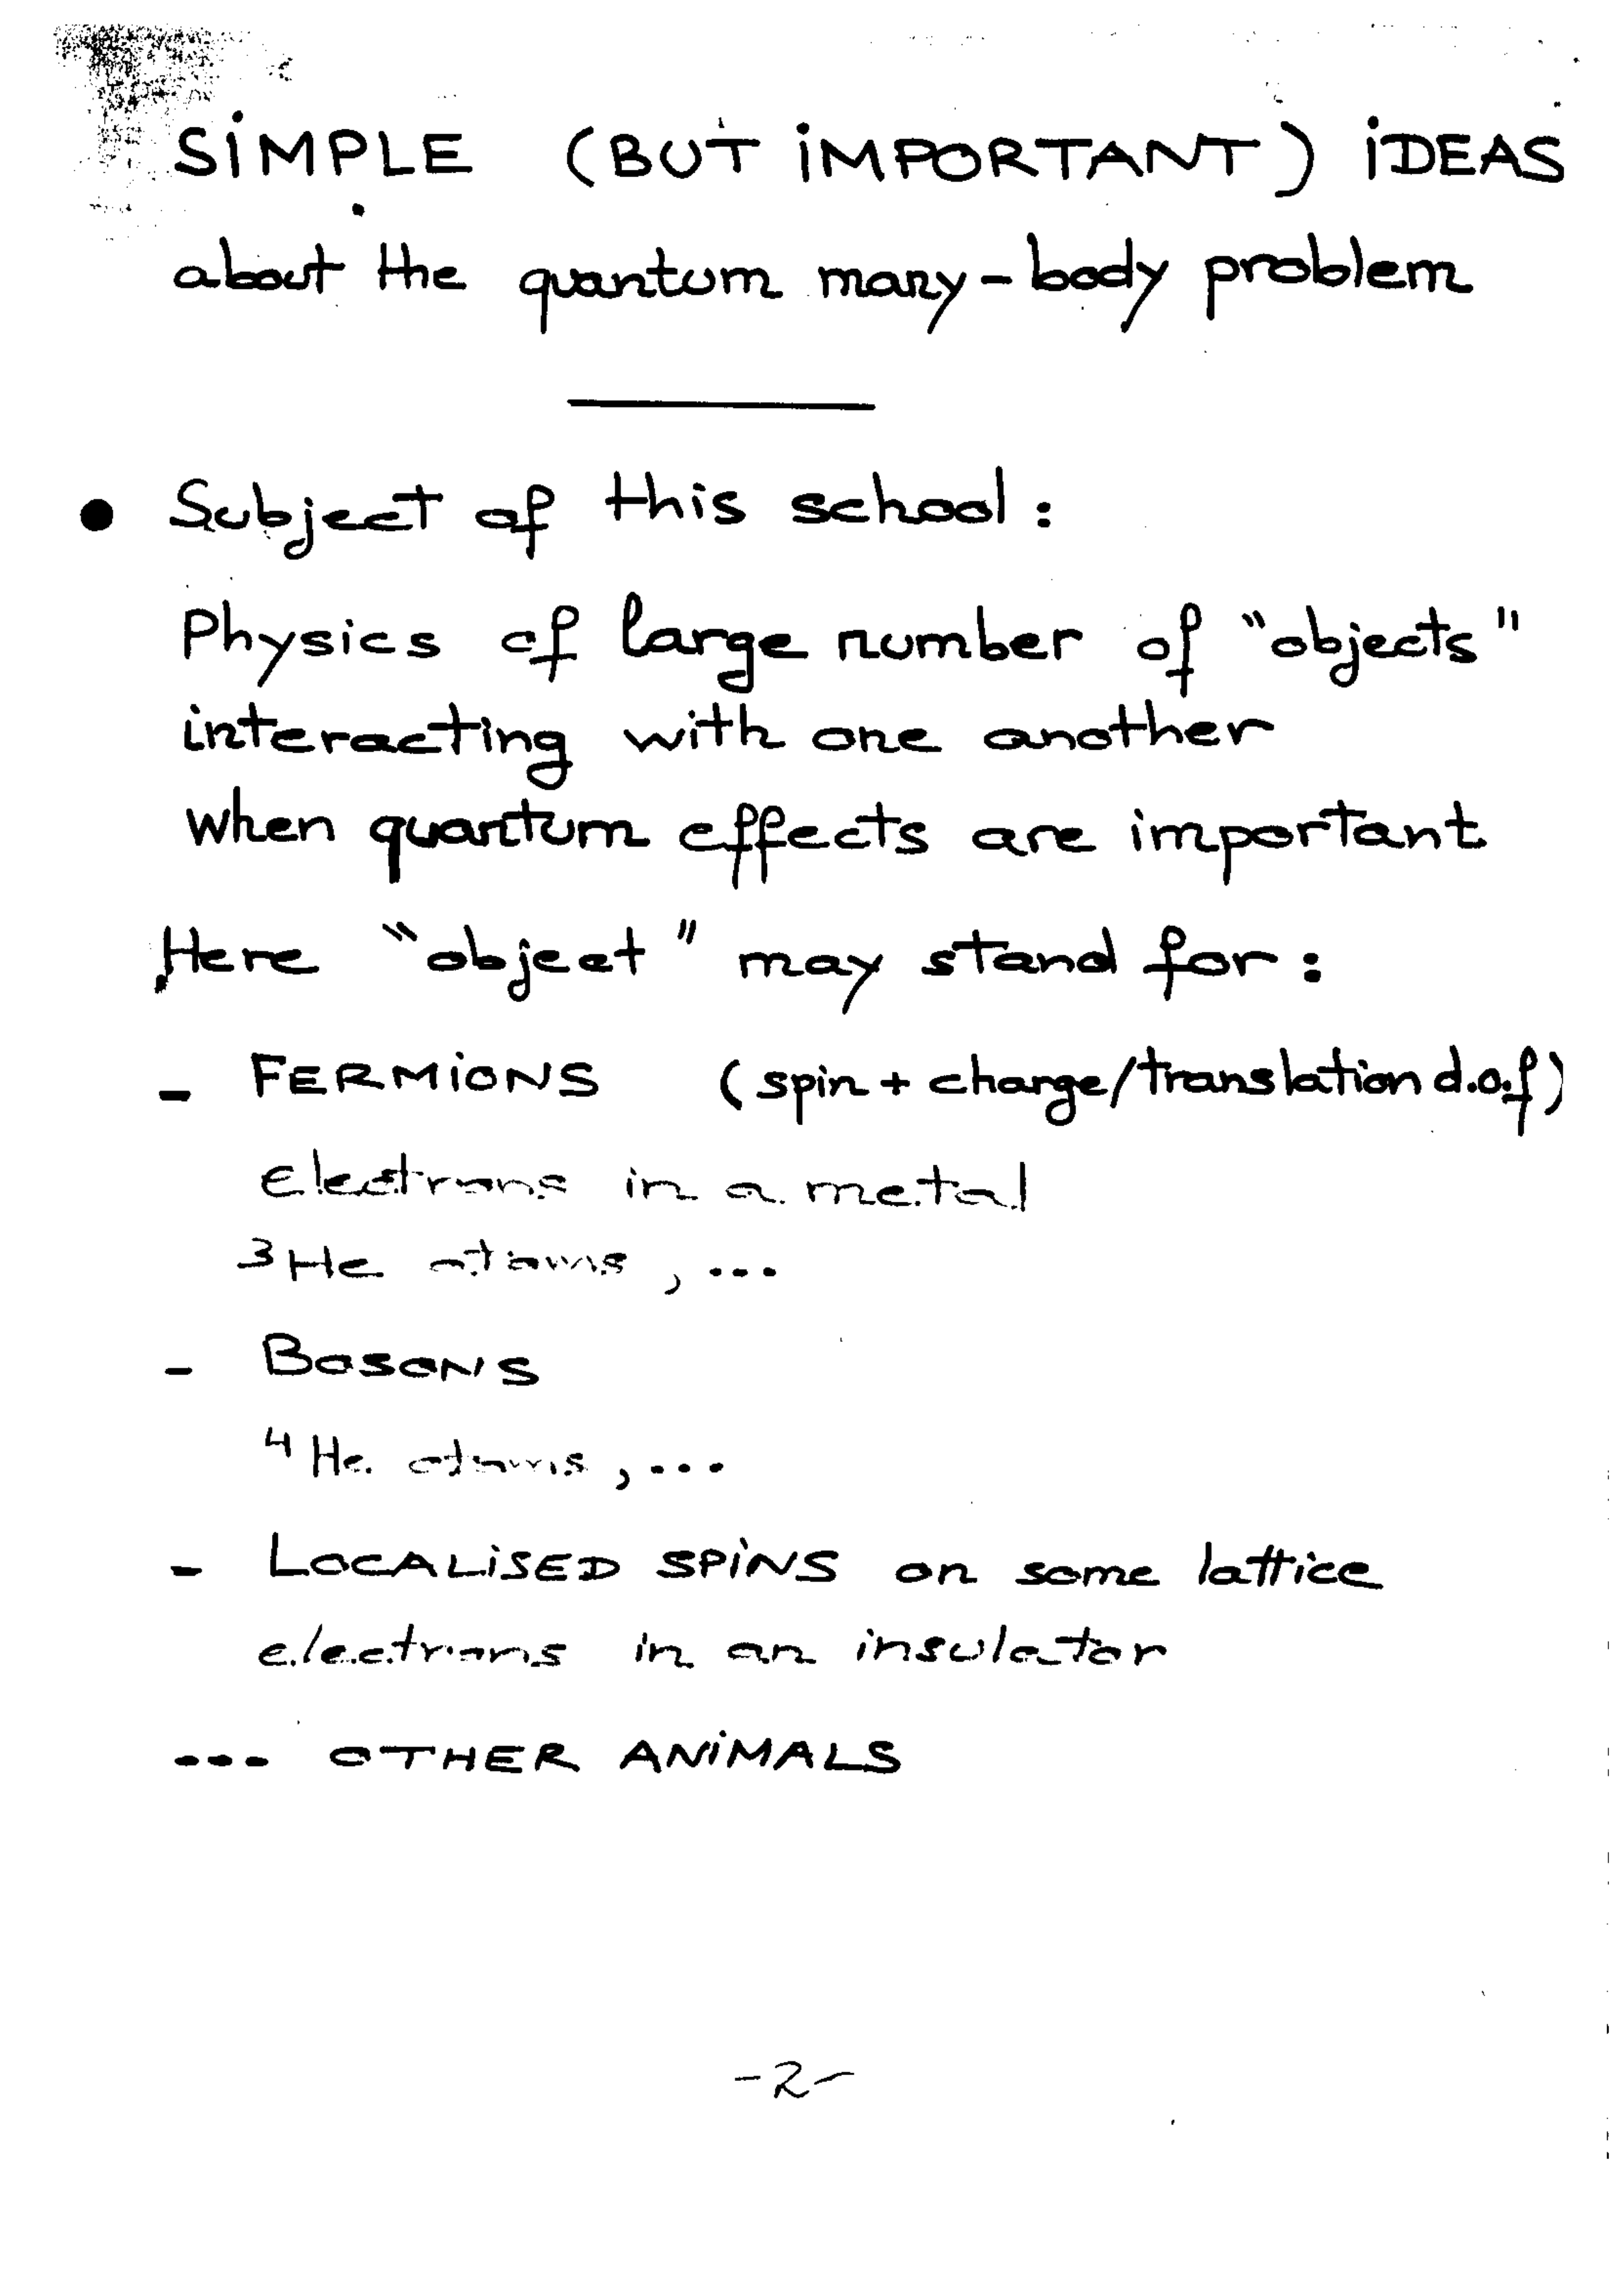 SIMPLE (BUT IMPORTANT) IDEAS
about the quantum many-body problem
• Subject of this school :
Physics of large number of "objects"
interacting with one another
when quantum effects are important
Here "object" may stand for :
- FERMIONS (spin + charge/translation d.o.f)
electrons in a metal
³He atoms, ...
- BOSONS
⁴He atoms, ...
- LOCALISED SPINS on some lattice
electrons in an insulator
... OTHER ANIMALS
-2-